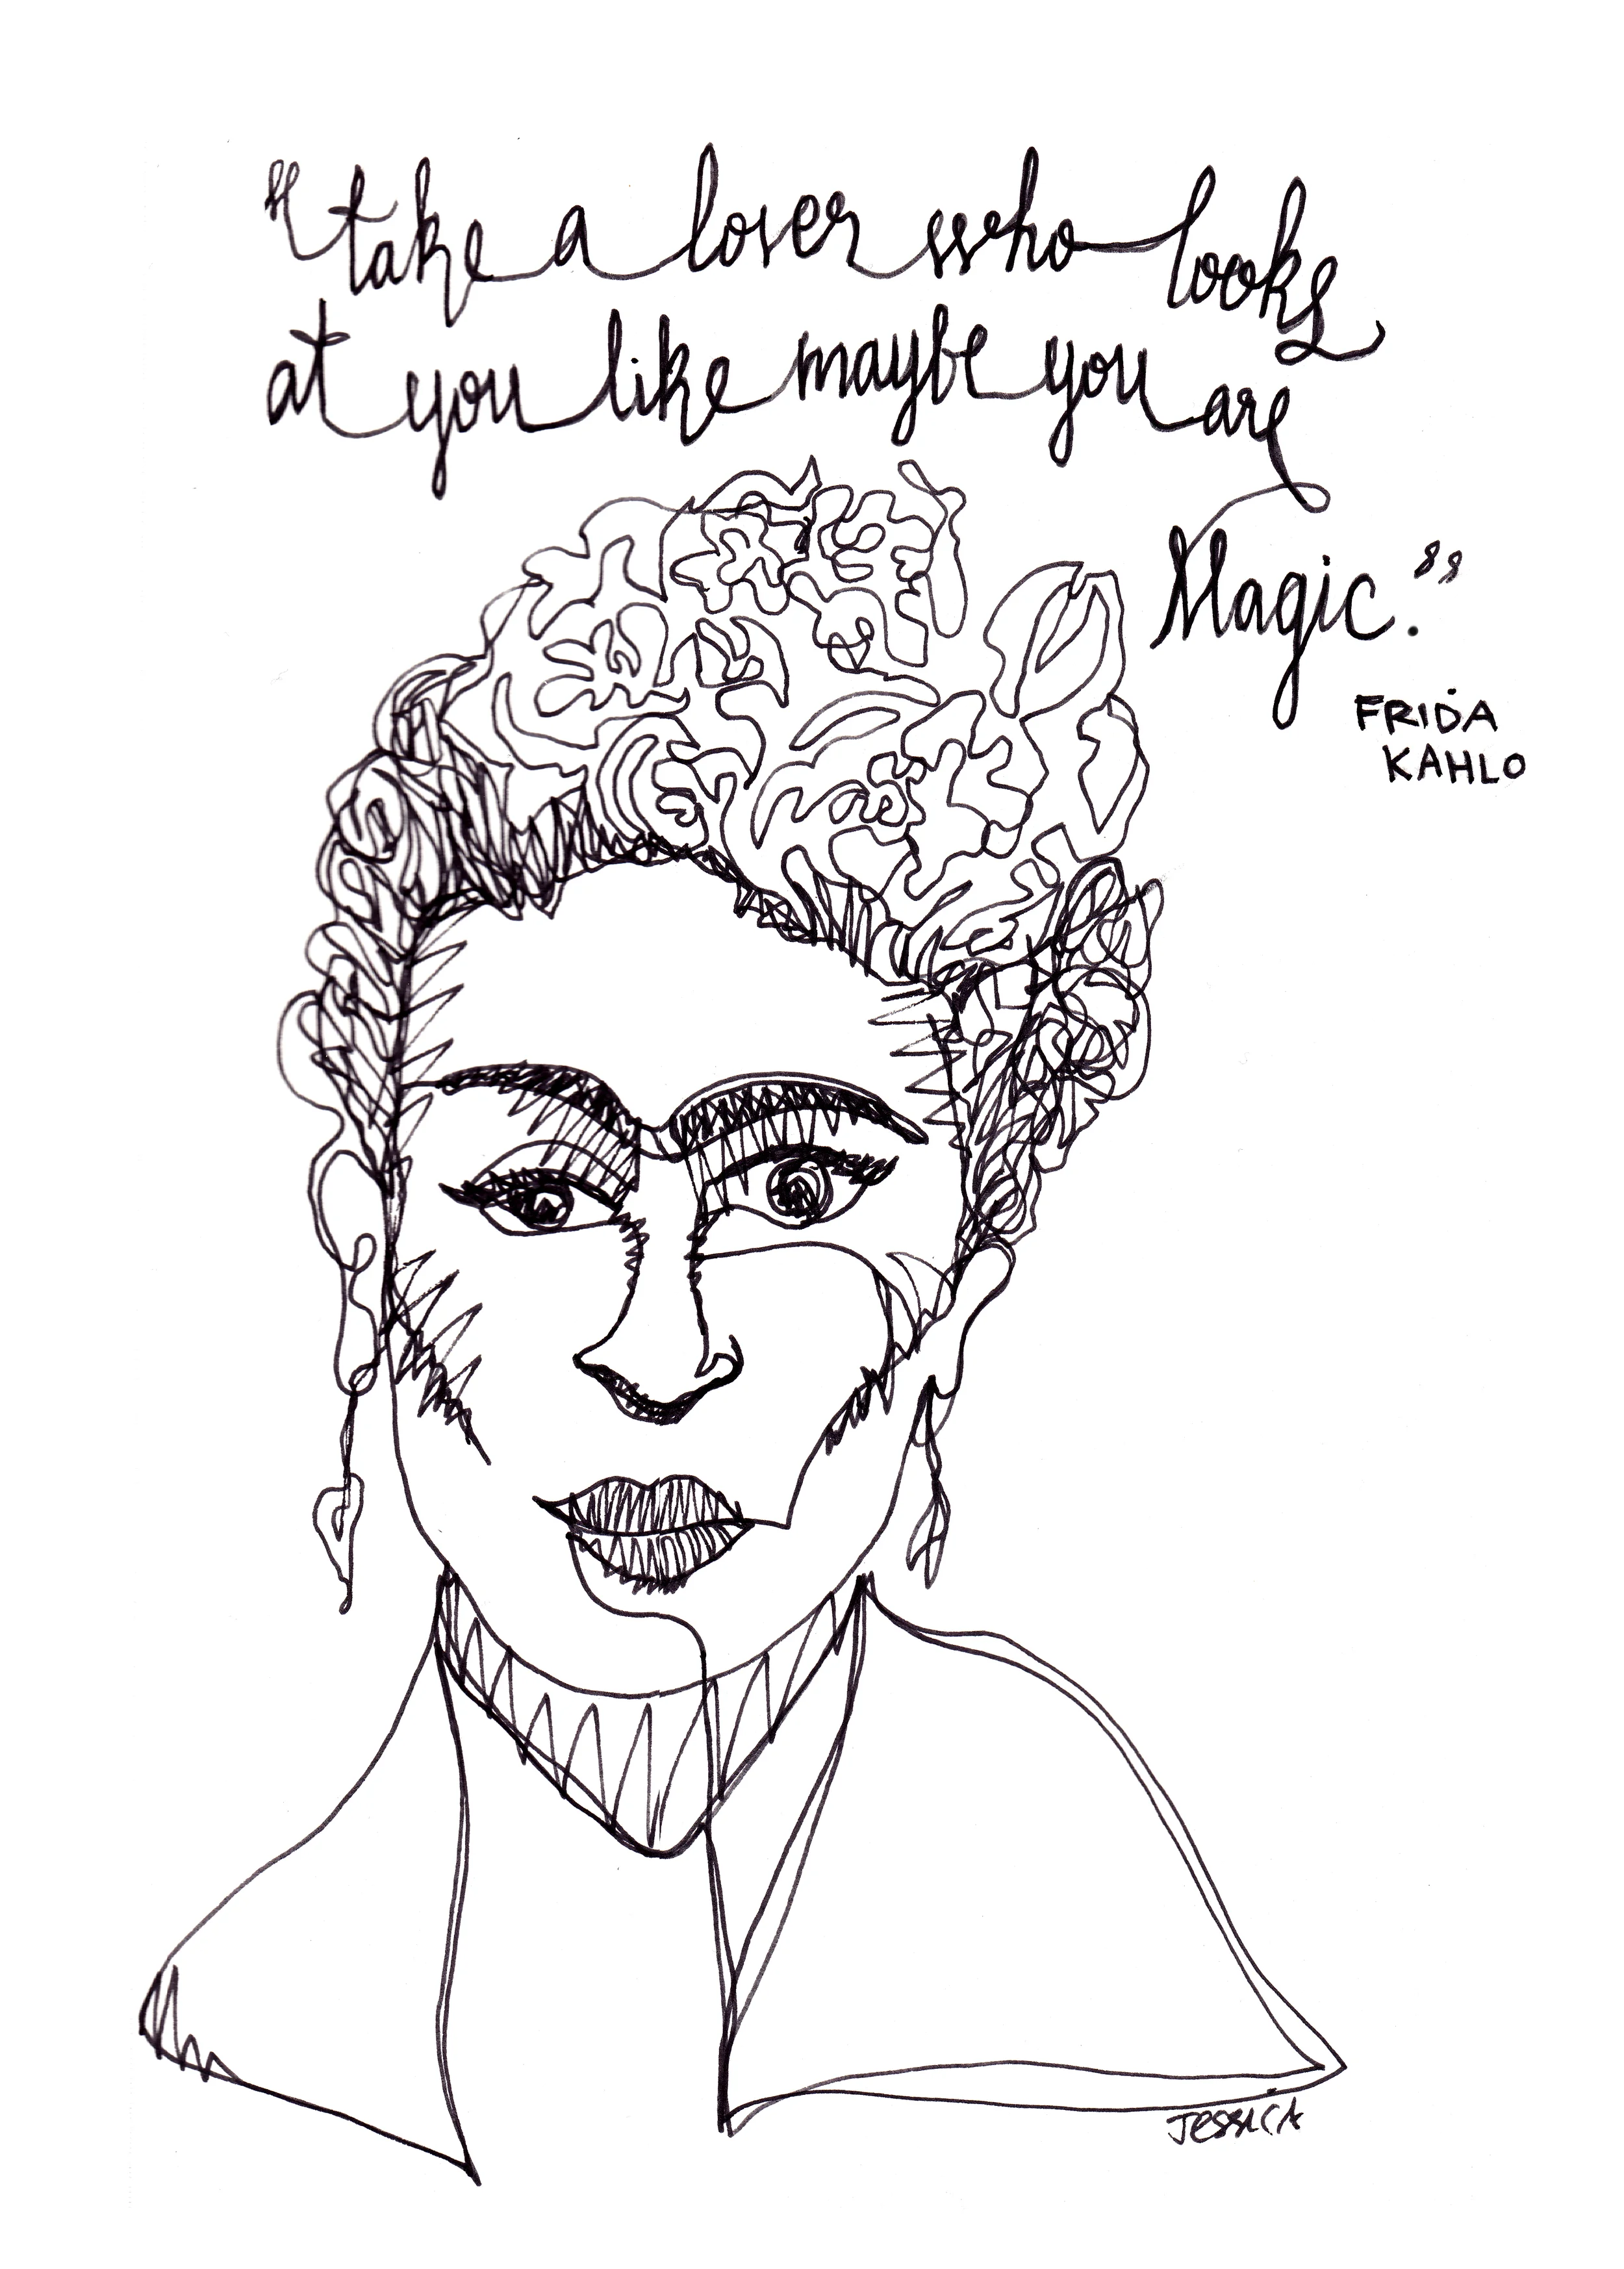 "take a lover who looks
at you like maybe you are
Magic."
FRIDA
KAHLO
JESSICA